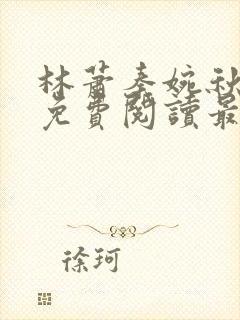 林蕭秦婉秋
免費閱讀最
徐珂